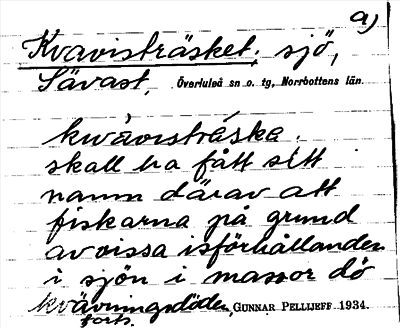 a)
Kvavisträsket, sjö,
Sävast, Överluleå sn o. tg, Norrbottens län.
kwávısträ́ska.
skall ha fått sitt
namn därav att
fiskarna på grund
av vissa isförhållanden
i sjön i massor dö
kvävningsdöden, GUNNAR PELLIJEFF 1934.
forts.